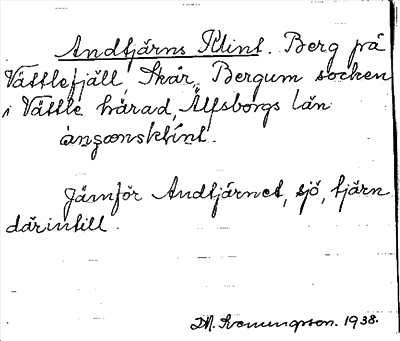 Andtjärns Klint. Berg på
Vättlefjäll, Skår, Bergum socken
i Vättle härad, Älfsborgs län
ànʒɶnsklínt.
Jämför Andtjärnet, sjö, tjärn
därintill.
D.H. Svenungsson. 1938.